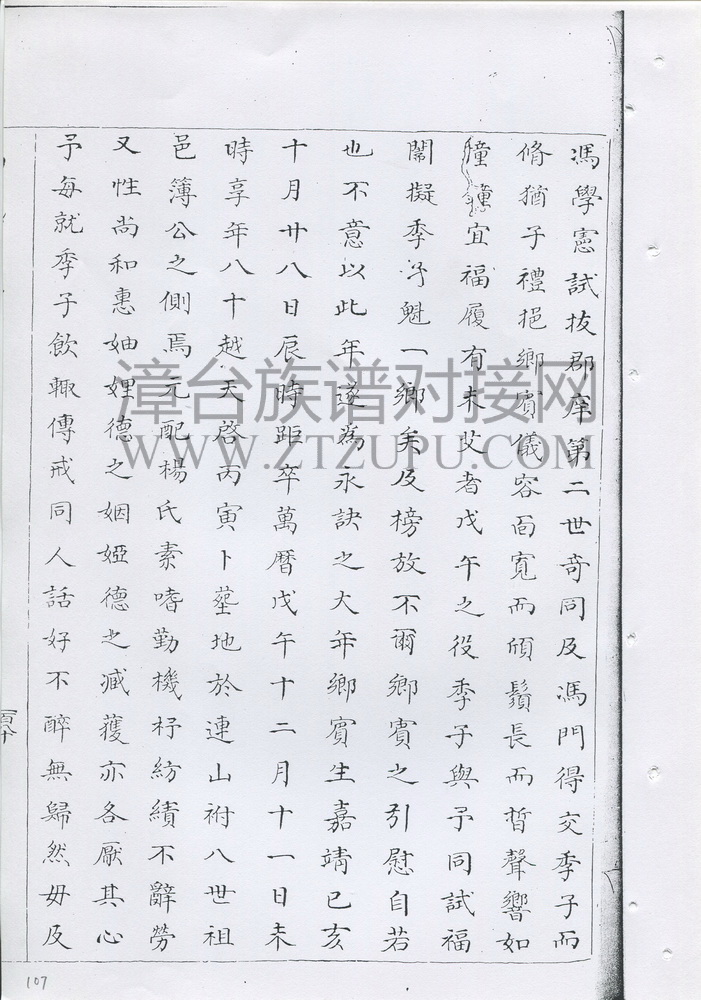 馮學憲試拔郡庠第二世奇同及馮門得交季子而
脩猶子禮挹鄉賓儀容面寬而頎鬚長而皙聲響如
撞鐘宜福履有未艾者戊午之役季子與予同試福
闈擬季子魁一鄉矣及榜放不爾鄉賓之引慰自若
也不意以此年遂為永訣之大年鄉賓生嘉靖己亥
十月廿八日辰時距卒萬曆戊午十二月十一日未
時享年八十越天啓丙寅卜塟地於連山祔八世祖
邑簿公之側焉元配楊氏素嗜勤機杼紡績不辭勞
又性尚和惠妯娌德之姻婭德之臧蒦亦各厭其心
予每就季子飲輙傳戒同人話好不醉無歸然毋及
漳台族谱对接网
WWW.ZTZUPU.COM
一百八十
107